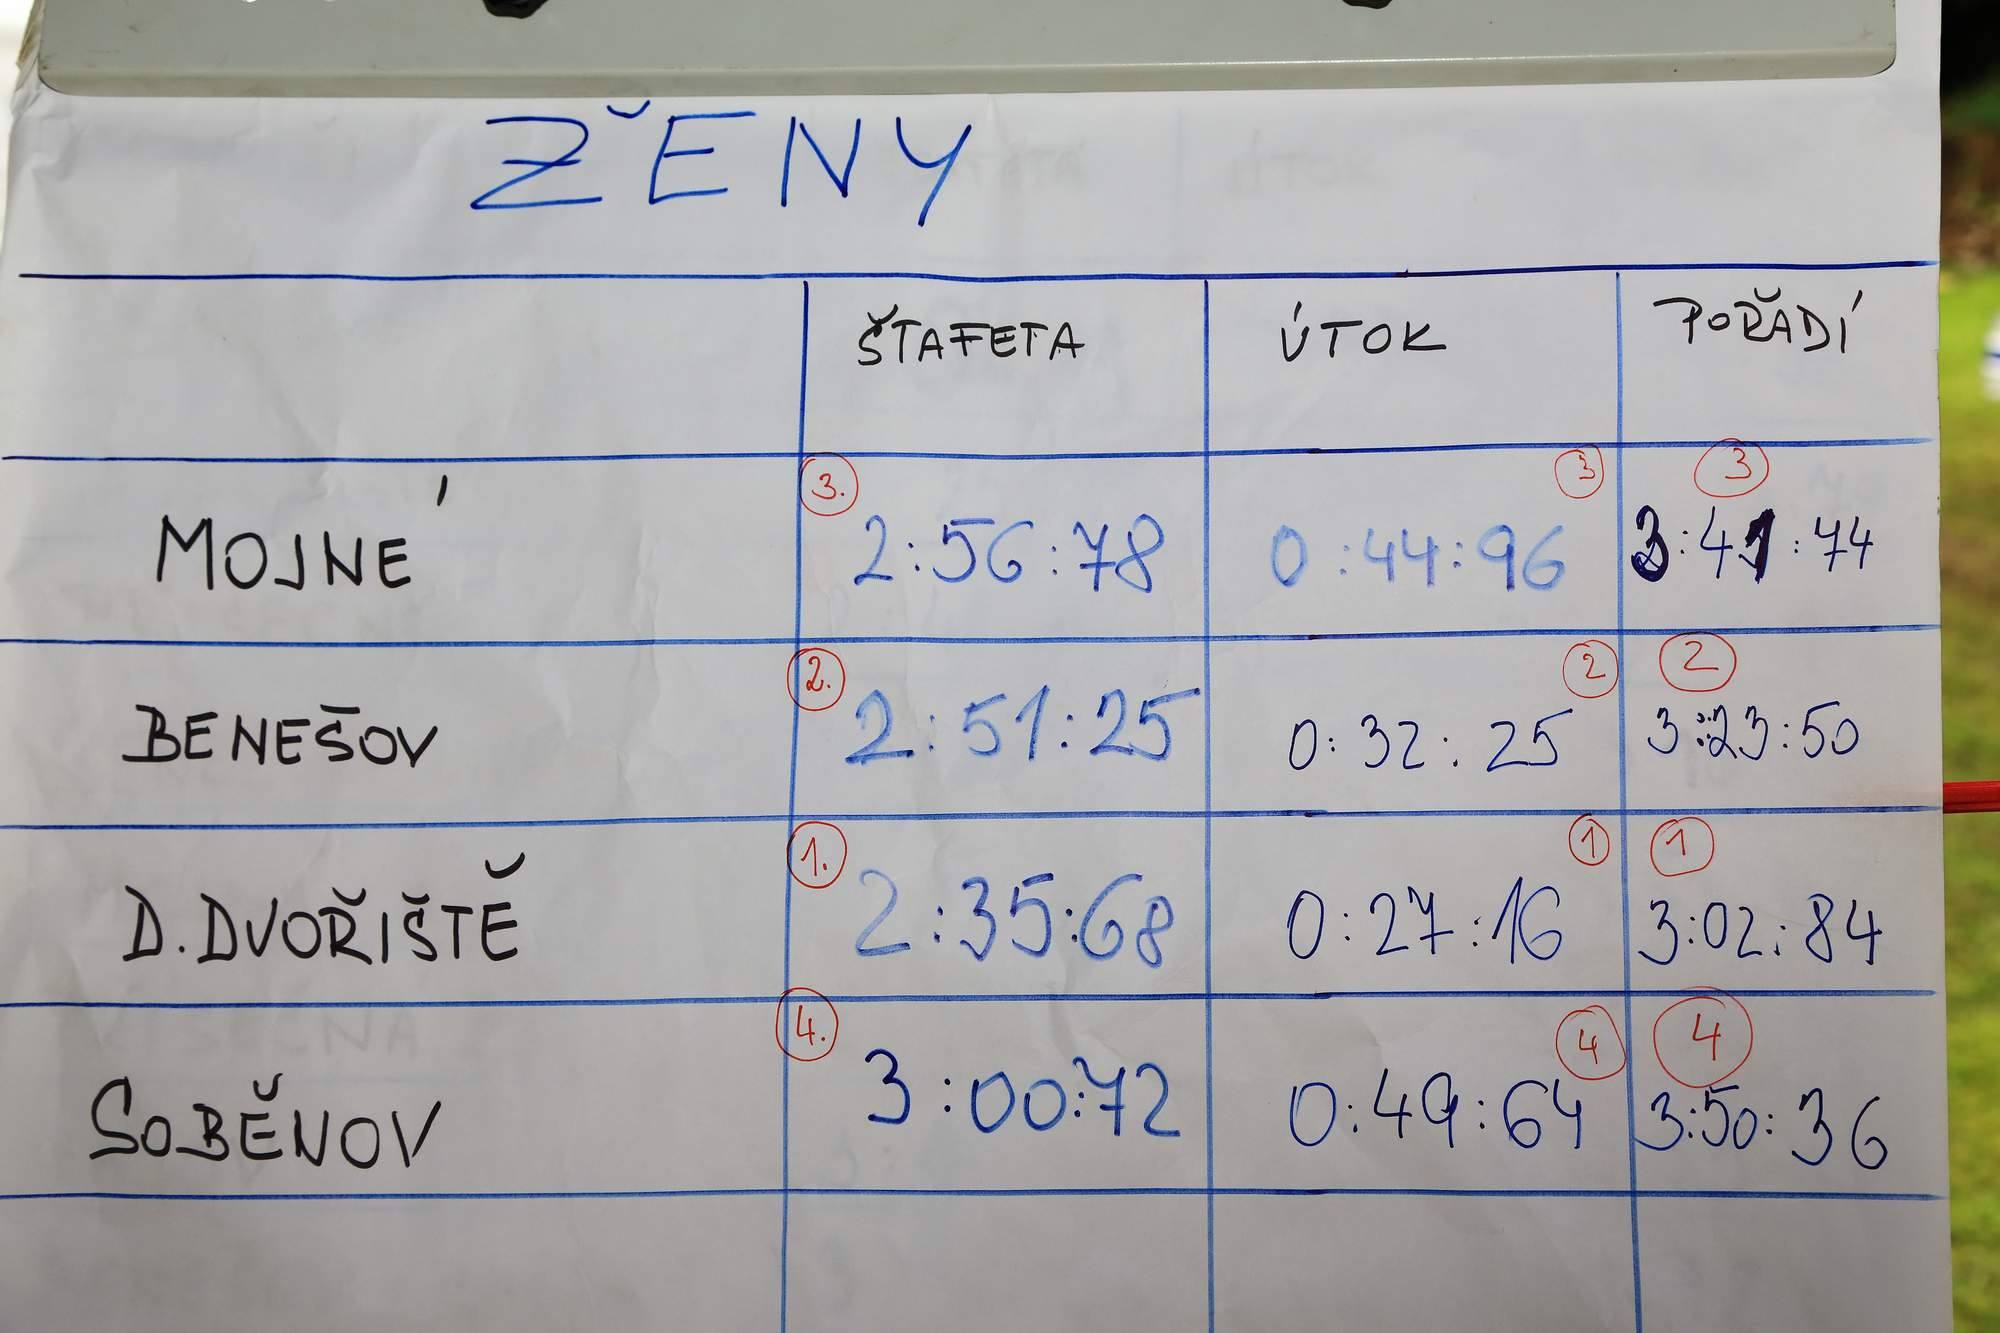 ŽENY
ŠTAFETA ÚTOK POŘADÍ
3. 3 3
MOJNÉ 2:56:78 0:44:96 3:41:74
2. 2 2
BENEŠOV 2:51:25 0:32:25 3:23:50
1. 1 1
D. DVOŘIŠTĚ 2:35:68 0:27:16 3:02:84
4. 4 4
SOBĚNOV 3:00:72 0:49:64 3:50:36